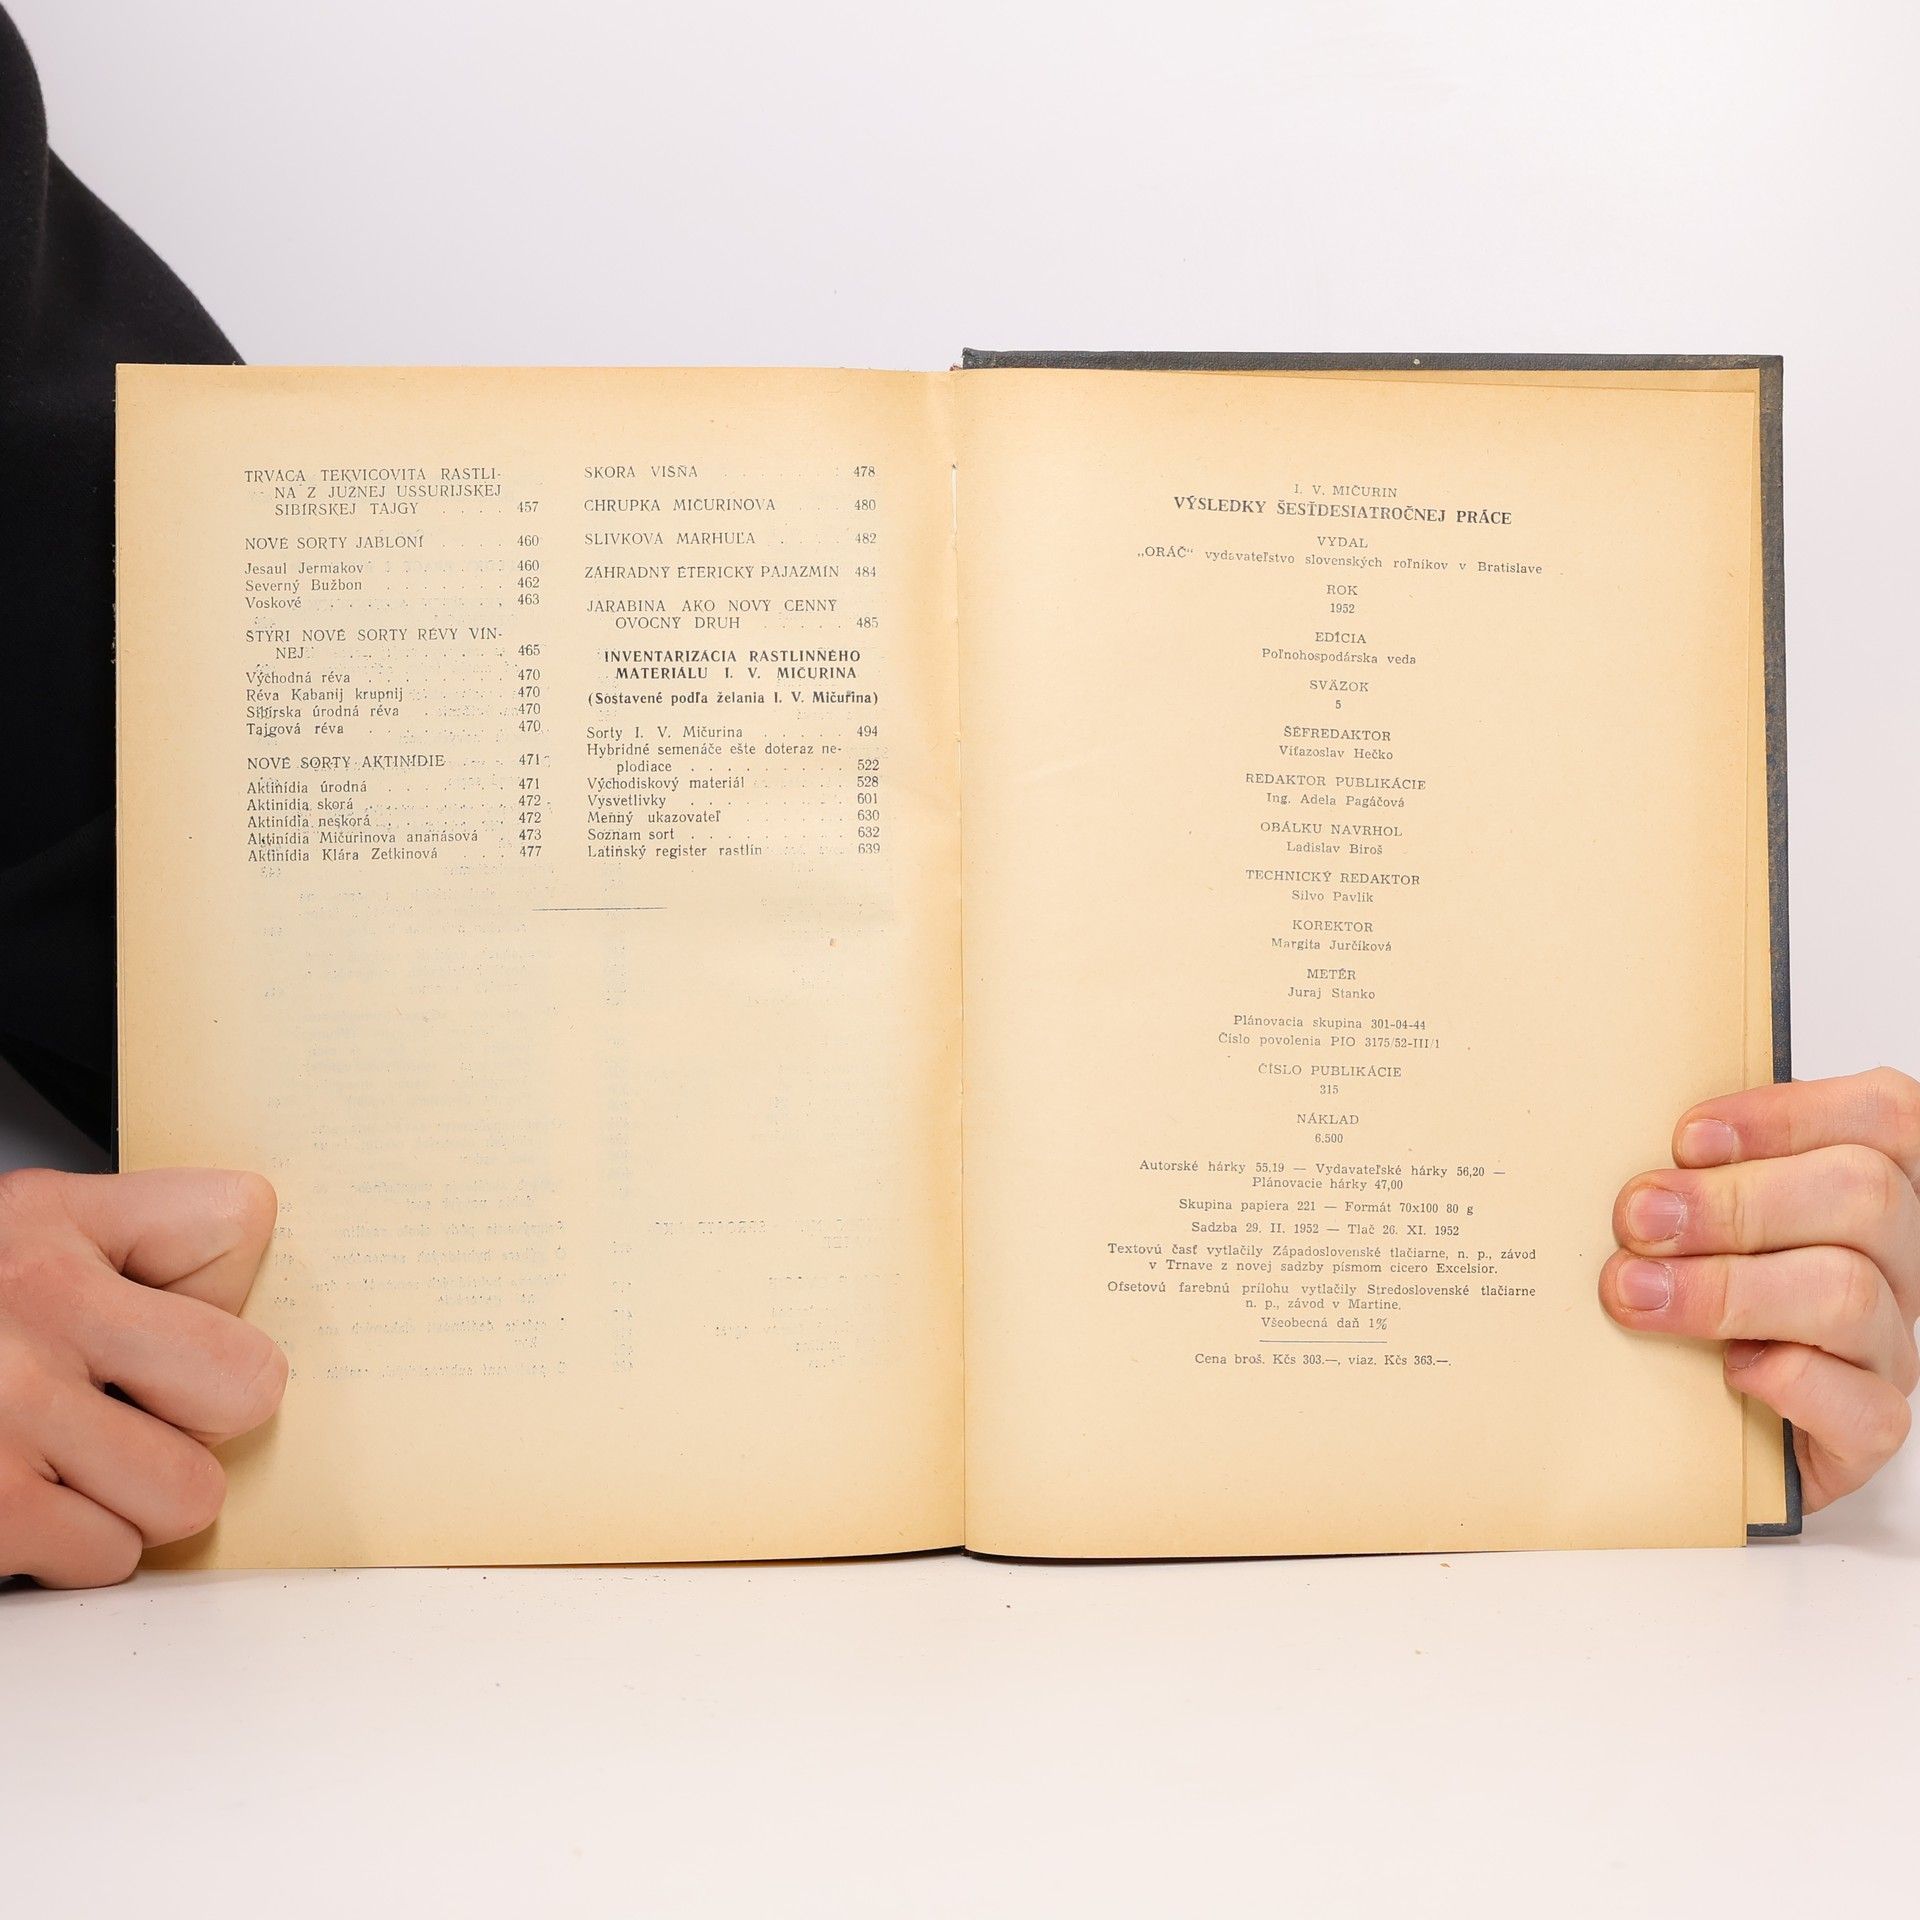 TRVÁCA TEKVICOVITÁ RASTLI-
NA Z JUŽNEJ USSURIJSKEJ
SIBÍRSKEJ TAJGY . . . . 457
NOVÉ SORTY JABLONÍ . . . . 460
Jesaul Jermakov 460
Severný Bužbon . . . . . . . 462
Voskové . . . . . . . . . . 463
ŠTYRI NOVÉ SORTY RÉVY VÍN-
NEJ . . . . . . . . . 465
Východná réva . . . . . . . . 470
Réva Kabanij krupnij . . . . . 470
Sibírska úrodná réva . . . . . 470
Tajgová réva . . . . . . . . 470
NOVÉ SORTY AKTINÍDIE . . . 471
Aktinídia úrodná . . . . . . . 471
Aktinídia skorá . . . . . . . . 472
Aktinídia neskorá . . . . . . . 472
Aktinídia Mičurinova ananásová . 473
Aktinídia Klára Zetkinová . . . 477
SKORÁ VIŠŇA . . . . . . . 478
CHRUPKA MIČURINOVA . . . 480
SLIVKOVÁ MARHUĽA . . . . 482
ZÁHRADNÝ ÉTERICKÝ PAJAZMÍN 484
JARABINA AKO NOVÝ CENNÝ
OVOCNÝ DRUH . . . . . 485
INVENTARIZÁCIA RASTLINNÉHO
MATERIÁLU I. V. MIČURINA
(Sostavené podľa želania I. V. Mičurina)
Sorty I. V. Mičurina . . . . . 494
Hybridné semenáče ešte doteraz ne-
plodiace . . . . . . . . . 522
Východiskový materiál . . . . . 528
Vysvetlivky . . . . . . . . . 601
Menný ukazovateľ . . . . . . 630
Soznam sort . . . . . . . . . 632
Latinský register rastlín . . . . 639
I. V. MIČURIN
VÝSLEDKY ŠESŤDESIATROČNEJ PRÁCE
VYDAL
„ORÁČ“ vydavateľstvo slovenských roľníkov v Bratislave
ROK
1952
EDÍCIA
Poľnohospodárska veda
SVÄZOK
5
ŠÉFREDAKTOR
Víťazoslav Hečko
REDAKTOR PUBLIKÁCIE
Ing. Adela Pagáčová
OBÁLKU NAVRHOL
Ladislav Biroš
TECHNICKÝ REDAKTOR
Silvo Pavlík
KOREKTOR
Margita Jurčíková
METÉR
Juraj Stanko
Plánovacia skupina 301-04-44
Číslo povolenia PIO 3175/52-III/1
ČÍSLO PUBLIKÁCIE
315
NÁKLAD
6.500
Autorské hárky 55,19 — Vydavateľské hárky 56,20 —
Plánovacie hárky 47,00
Skupina papiera 221 — Formát 70x100 80 g
Sadzba 29. II. 1952 — Tlač 26. XI. 1952
Textovú časť vytlačily Západoslovenské tlačiarne, n. p., závod
v Trnave z novej sadzby písmom cicero Excelsior.
Ofsetovú farebnú prílohu vytlačily Stredoslovenské tlačiarne
n. p., závod v Martine.
Všeobecná daň 1%
Cena broš. Kčs 303.—, viaz. Kčs 363.—.